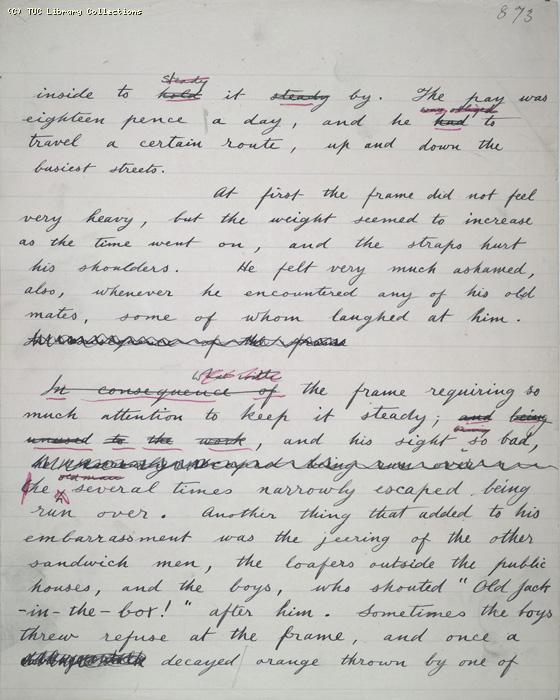 (C) TUC Library Collections
873
steady
inside to hold it steady by. The pay was
was obliged
eighteen pence a day, and he had to
travel a certain route, up and down the
busiest streets.
At first the frame did not feel
very heavy, but the weight seemed to increase
as the time went on, and the straps hurt
his shoulders. He felt very much ashamed,
also, whenever he encountered any of his old
mates, some of whom laughed at him.
In consequence of the frame
In consequence of the frame requiring so
much attention to keep it steady; and being
unused to the work, and his sight so bad,
old man
the several times narrowly escaped being
run over. Another thing that added to his
embarrassment was the jeering of the other
sandwich men, the loafers outside the public
houses, and the boys, who shouted "Old Jack
-in-the-box!" after him. Sometimes the boys
threw refuse at the frame, and once a
decayed orange thrown by one of